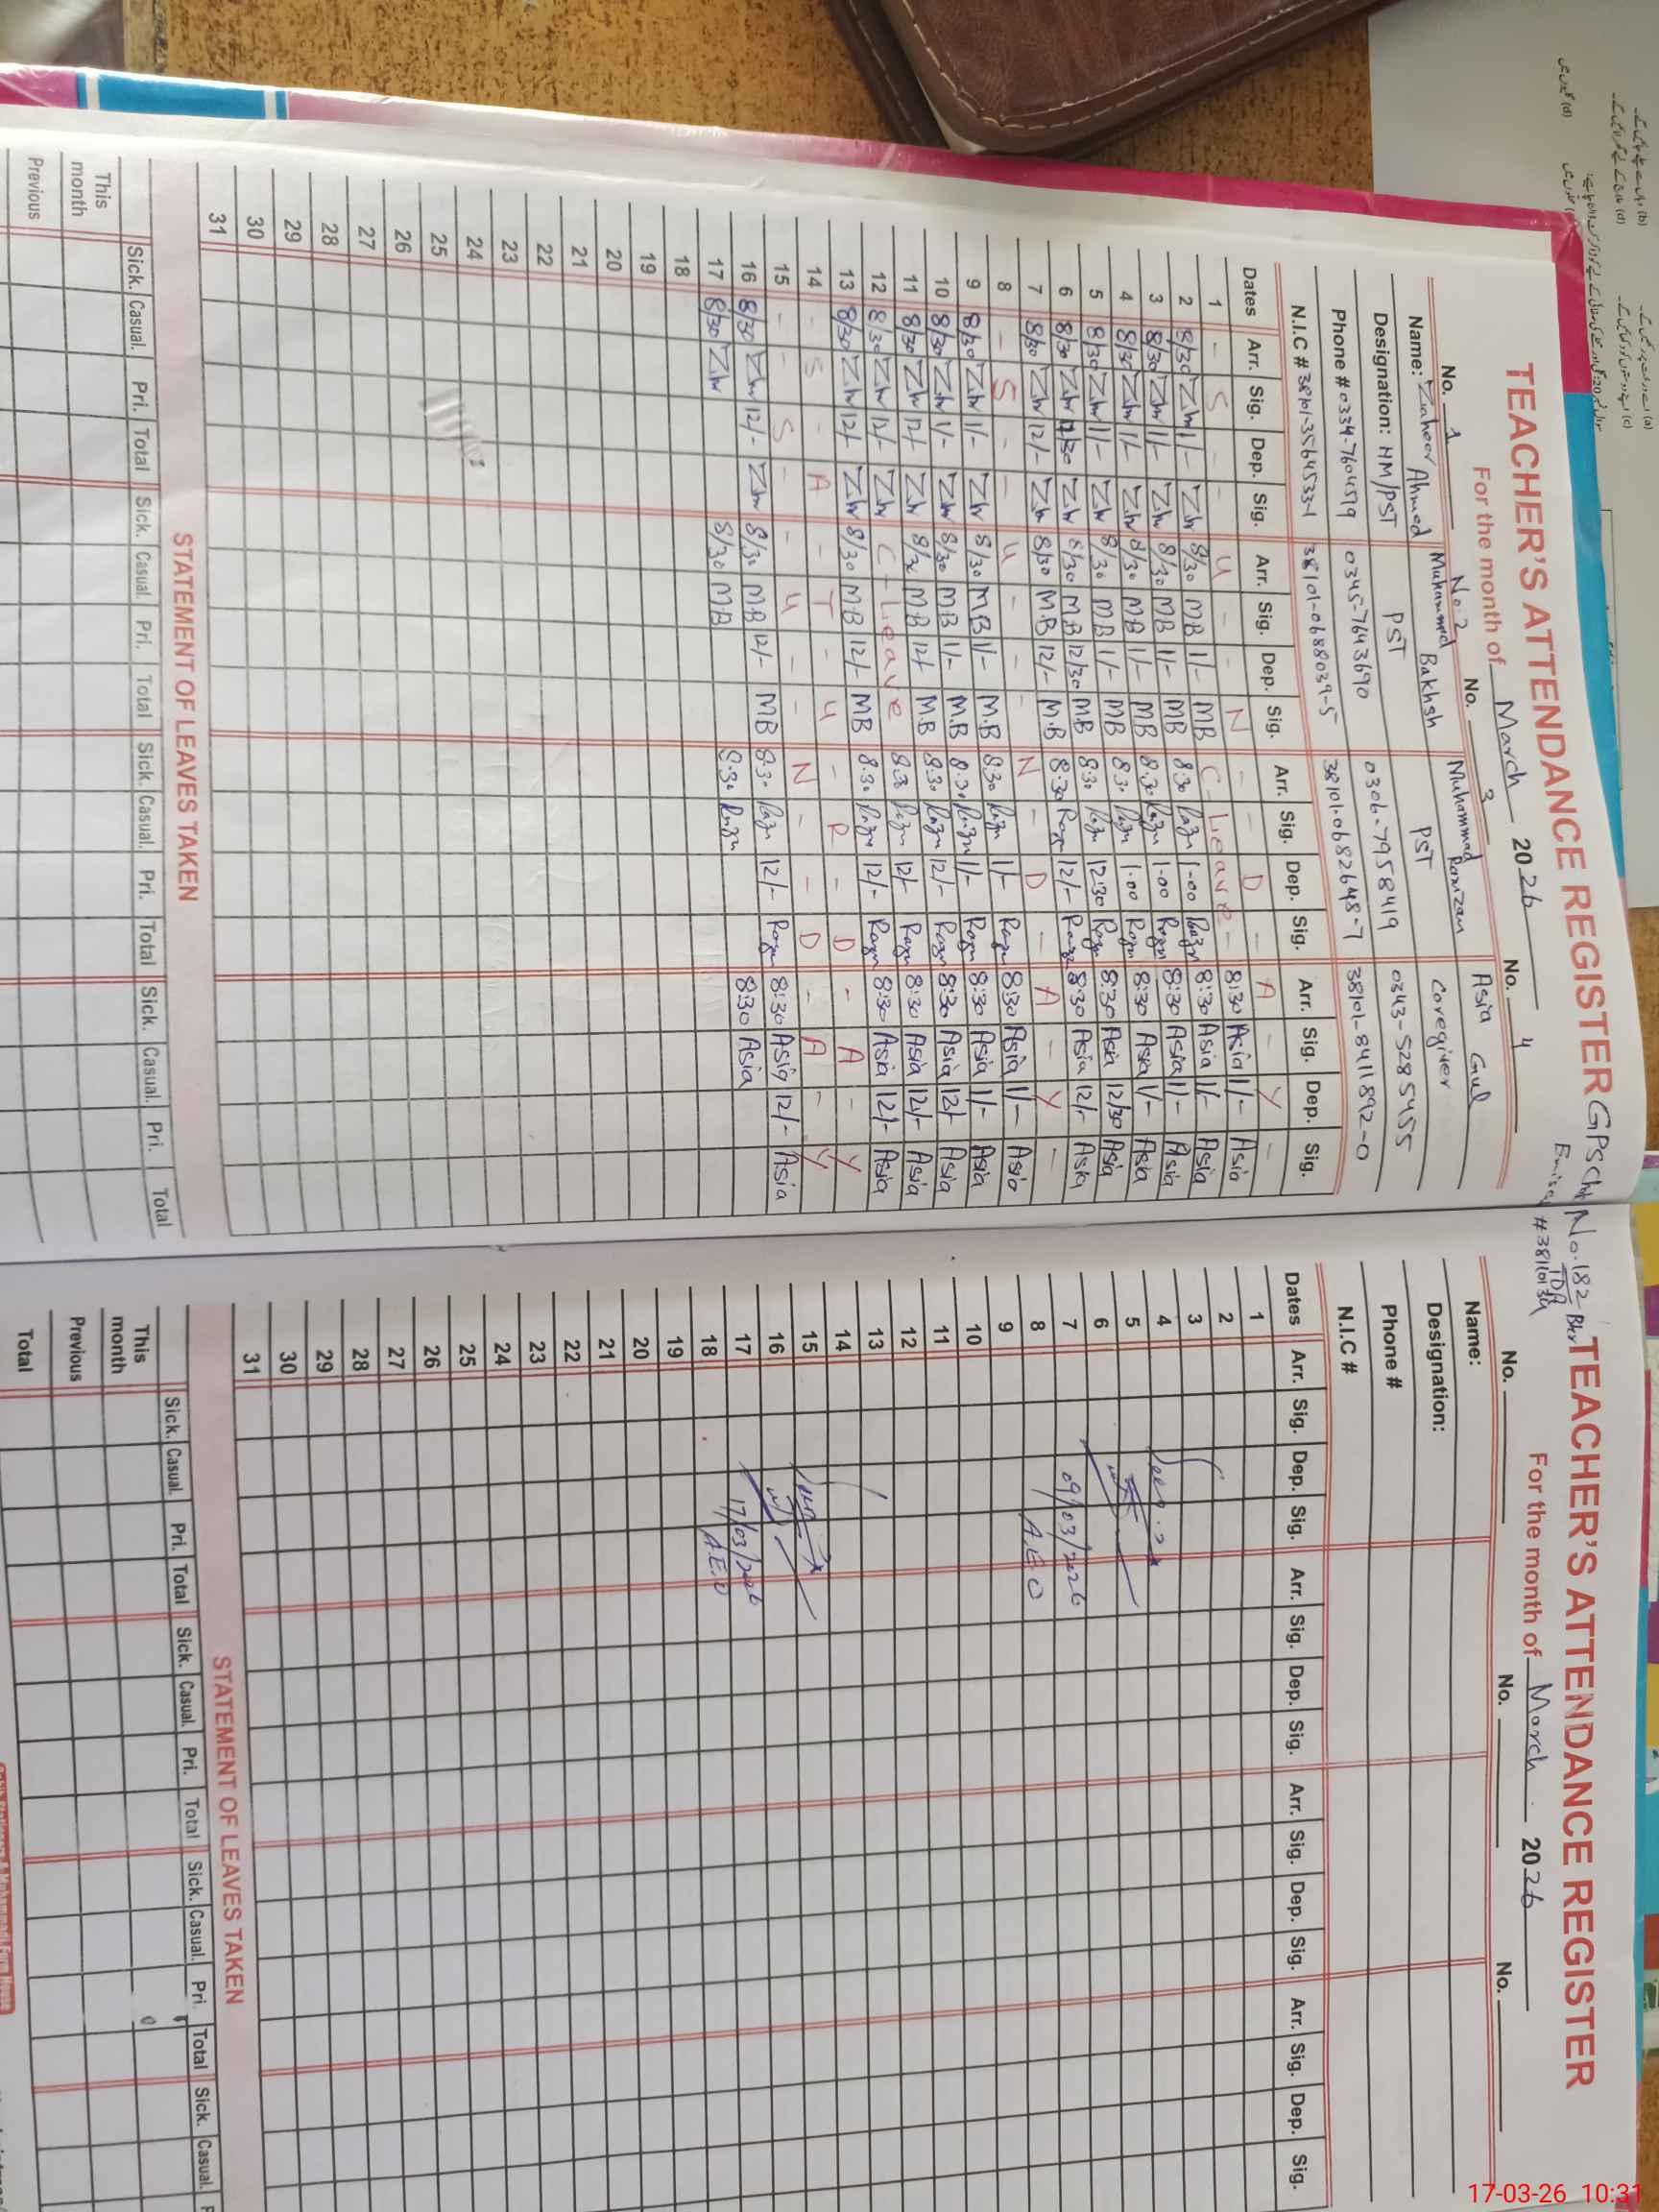 TEACHER'S ATTENDANCE REGISTER GPSch
For the month of March 2026
No. 1 No. 2 No. 3 No. 4
Name: Zaheer Ahmed Muhammad Bakhsh Muhammad Ramzan Asia Gul
Designation: HM/PST PST PST Caregiver
Phone # 0334-7604519 0345-7643690 0306-7958419 0343-5285455
N.I.C # 38101-3564533-1 38101-0688039-5 38101-0682648-7 38101-8411892-0
Dates Arr. Sig. Dep. Sig. Arr. Sig. Dep. Sig. Arr. Sig. Dep. Sig. Arr. Sig. Dep. Sig.
1 - S - - U - - N - - D - A - Y -
2 8/30 Zhr 1/- Zhr 8/30 MB 1/- MB C - Leave - 8:30 Asia 1/- Asia
3 8/30 Zhr 1/- Zhr 8/30 MB 1/- MB 8:30 Razn 1-00 Razn 8:30 Asia 1/- Asia
4 8/30 Zhr 1/- Zhr 8/30 MB 1/- MB 8:30 Razn 1-00 Razn 8:30 Asia 1/- Asia
5 8/30 Zhr 1/- Zhr 8/30 MB 1/- MB 8:30 Razn 1-00 Razn 8:30 Asia 1/- Asia
6 8/30 Zhr 12/30 Zhr 8/30 MB 12/30 MB 8:30 Razn 12:30 Razn 8:30 Asia 12/30 Asia
7 8/30 Zhr 12/- Zhr 8/30 M.B 12/- M.B 8:30 Razn 12/- Razn 8:30 Asia 12/- Asia
8 - S - - U - - - N - D - A - Y -
9 8/30 Zhr 1/- Zhr 8/30 MB 1/- M.B 8:30 Razn 1/- Razn 8:30 Asia 1/- Asia
10 8/30 Zhr 1/- Zhr 8/30 MB 1/- M.B 8:30 Razn 1/- Razn 8:30 Asia 1/- Asia
11 8/30 Zhr 12/- Zhr 8/30 MB 12/- M.B 8:30 Razn 12/- Razn 8:30 Asia 12/- Asia
12 8/30 Zhr 12/- Zhr C - Leave 8:30 Razn 12/- Razn 8:30 Asia 12/- Asia
13 8/30 Zhr 12/- Zhr 8/30 MB 12/- MB 8:30 Razn 12/- Razn 8:30 Asia 12/- Asia
14 - S - A - T - U - R - D - A - Y
15 - - S - - U - - N - - D - A - Y
16 8/30 Zhr 12/- Zhr 8/30 MB 12/- MB 8:30 Razn 12/- Razn 8:30 Asia 12/- Asia
17 8/30 Zhr 8/30 MB 8:30 Razn 8:30 Asia
18
19
20
21
22
23
24
25
26
27
28
29
30
31
STATEMENT OF LEAVES TAKEN
Sick. Casual. Pri. Total Sick. Casual. Pri. Total Sick. Casual. Pri. Total Sick. Casual. Pri. Total
This month
Previous
No. 182 Bkr TEACHER'S ATTENDANCE REGISTER
TDA
# 38110134
For the month of March 2026
No. No. No.
Name:
Designation:
Phone #
N.I.C #
Dates Arr. Sig. Dep. Sig. Arr. Sig. Dep. Sig. Arr. Sig. Dep. Sig. Arr. Sig. Dep. Sig.
1
2
3
4
5
6
7 09/03/2026
8 A.E.O
9
10
11
12
13
14
15
16
17 17/03/2026
18 A.E.O
19
20
21
22
23
24
25
26
27
28
29
30
31
STATEMENT OF LEAVES TAKEN
Sick. Casual. Pri. Total Sick. Casual. Pri. Total Sick. Casual. Pri. Total Sick. Casual.
This month
Previous
Total
17-03-26 10:31